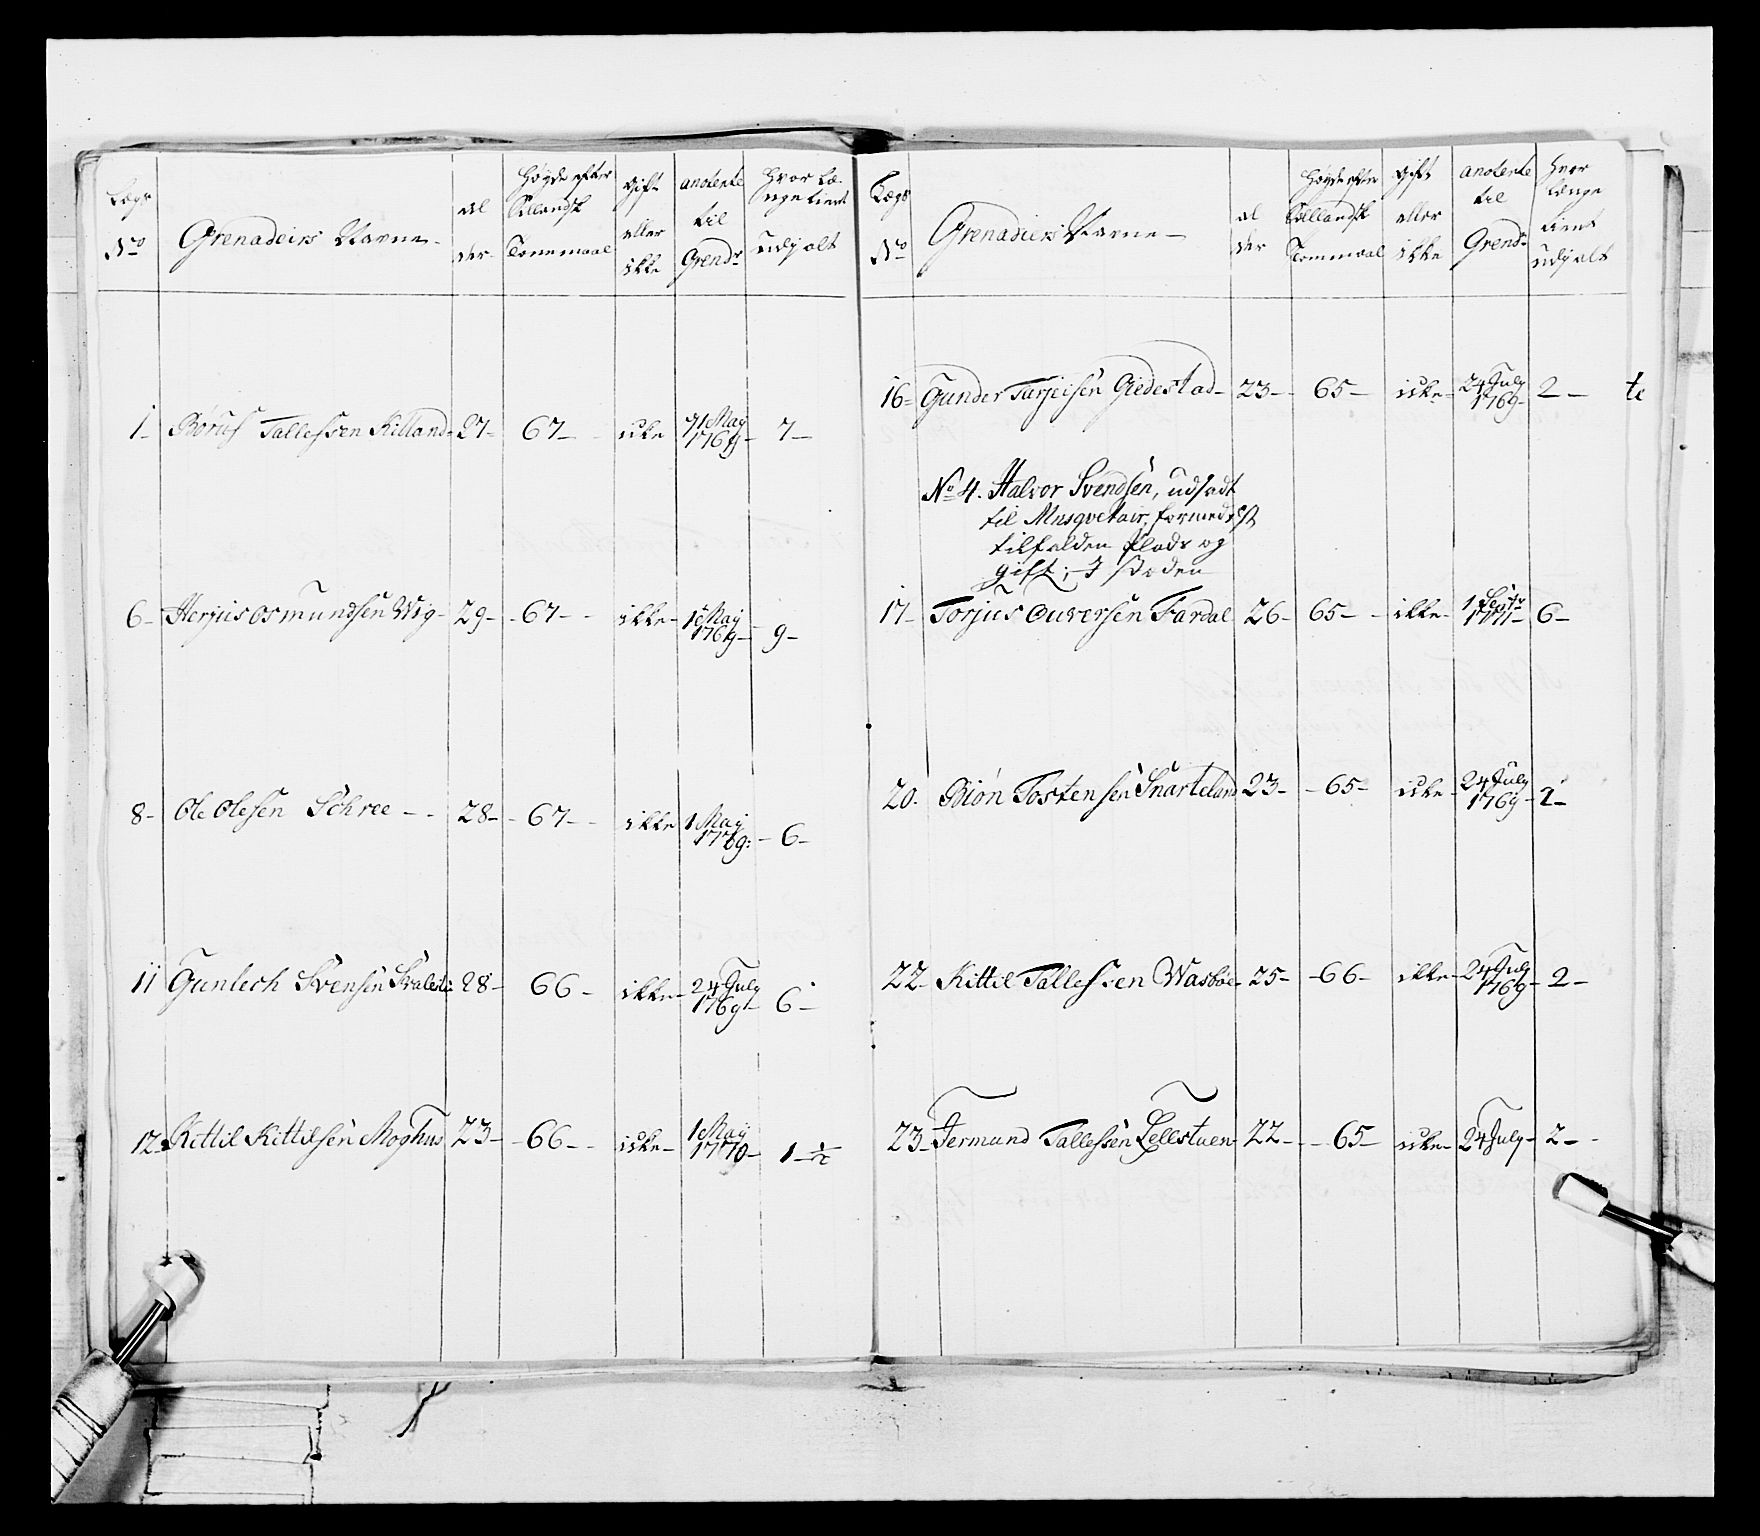 Lægs No
Grenadeirs Navne
al der
Høyde efter Sællandsk Tommemaal
Gift eller ikke
ansente til Grendr
Hvor længe tient udj alt
1 Tallefssen Killand 27 67 ikke May 7
6 Herjus Osmundsen Wig 29 67 ikke 1 May 1769 9
8 Ole Olesen Schree 28 67 ikke 1 May 6
11 Gunlech Svensen 28 66 ikke 24 July 1769 6
12 Kittil Kittilsen Moghus 23 66 ikke 1 May 1770 1 1/2
Lægs No
Grenadiers Navne
al der
Høyde efter Sællandsk Tommaal
Gift eller ikke
ansente til Grendr
Hvor længe tient udj alt
16 Gunder Tarjeisen Giedestad 23 65 ikke 24 July 1769 2
te
No 4. Halvor Svendsen, udsadt
til Musqvetair, formedelst
tilfalden Plads og
gift; I Støden
17 Torjus Ouversen Fardal 26 65 ikke 1 Septr 1771 6
20 Biøn Tostensen Snarteland 23 65 ikke 24 July 1769 2
22 Kittil Tallefssen Wasbøe 25 66 ikke 24 July 1769 2
23 Jermund Tallefssen Lellstuen 22 65 ikke 24 July 2